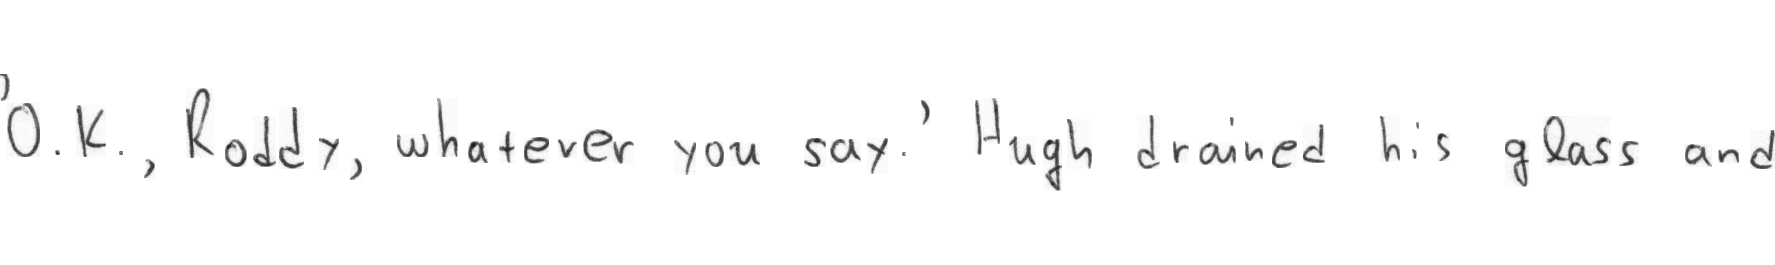 'O.K., Roddy, whatever you say.' Hugh drained his glass and